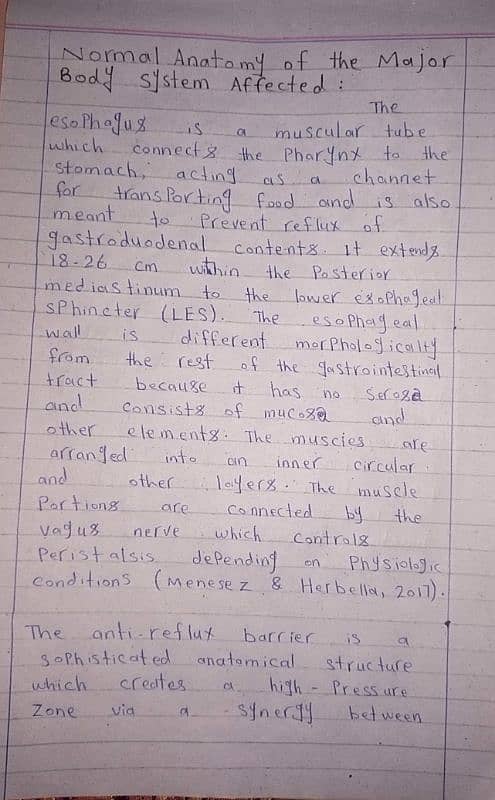 Normal Anatomy of the Major
Body System Affected :
The
esophagus is a muscular tube
which connects the Pharynx to the
stomach, acting as a channet
for transporting food and is also
meant to Prevent reflux of
gastroduodenal contents. It extends
18-26 cm within the Posterior
mediastinum to the lower esophageal
sphincter (LES). The esophageal
wall is different morphologicalty
from the rest of the gastrointestinal
tract because it has no serosa
and consists of mucosa and
other elements. The muscies are
arranged into an inner circular
and other layers. The muscle
Portions are connected by the
vagus nerve which controls
Peristalsis depending on Physiologic
conditions (Menesez & Herbella, 2017).
The anti-reflux barrier is a
sophisticated anatomical structure
which creates a high-Pressure
Zone via a synergy between